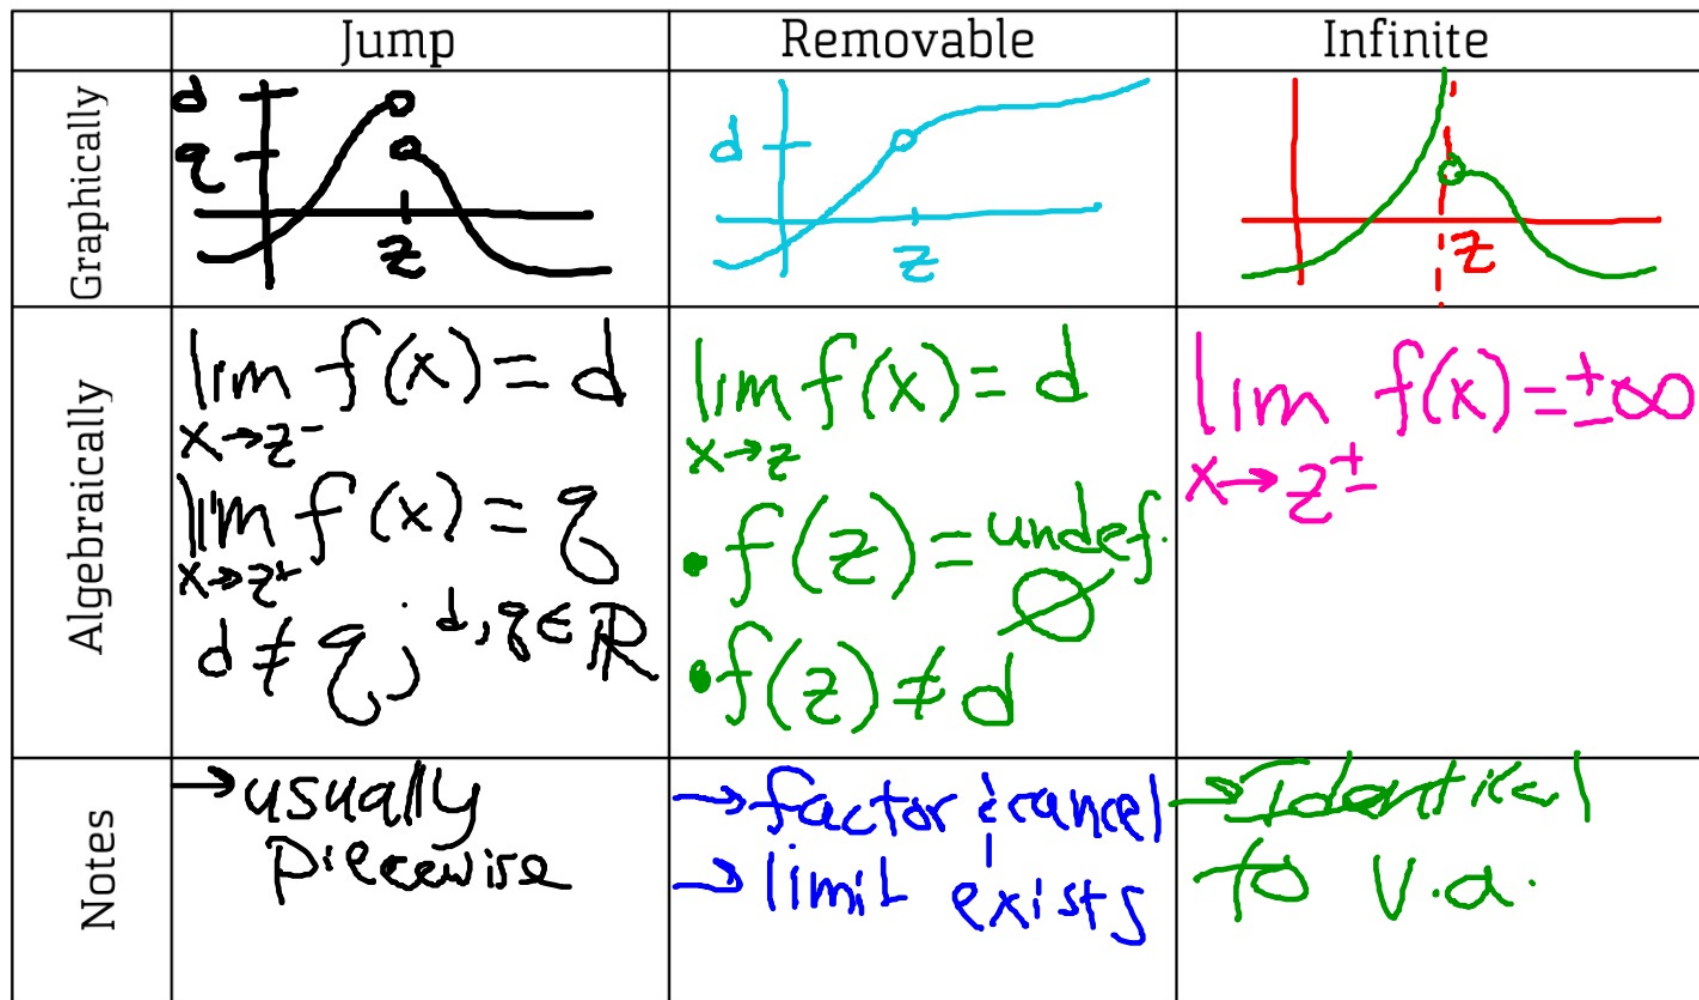 Jump Removable Infinite
Graphically
d
q
z
d
z
z
Algebraically
lim f(x) = d
x→z⁻
lim f(x) = q
x→z⁺
d ≠ q; d, q ∈ ℝ
lim f(x) = d
x→z
• f(z) = undef.
∅
• f(z) ≠ d
lim f(x) = ±∞
x→z±
Notes
→ usually
piecewise
→ factor & cancel
→ limit exists
→ Identical
to V.a.